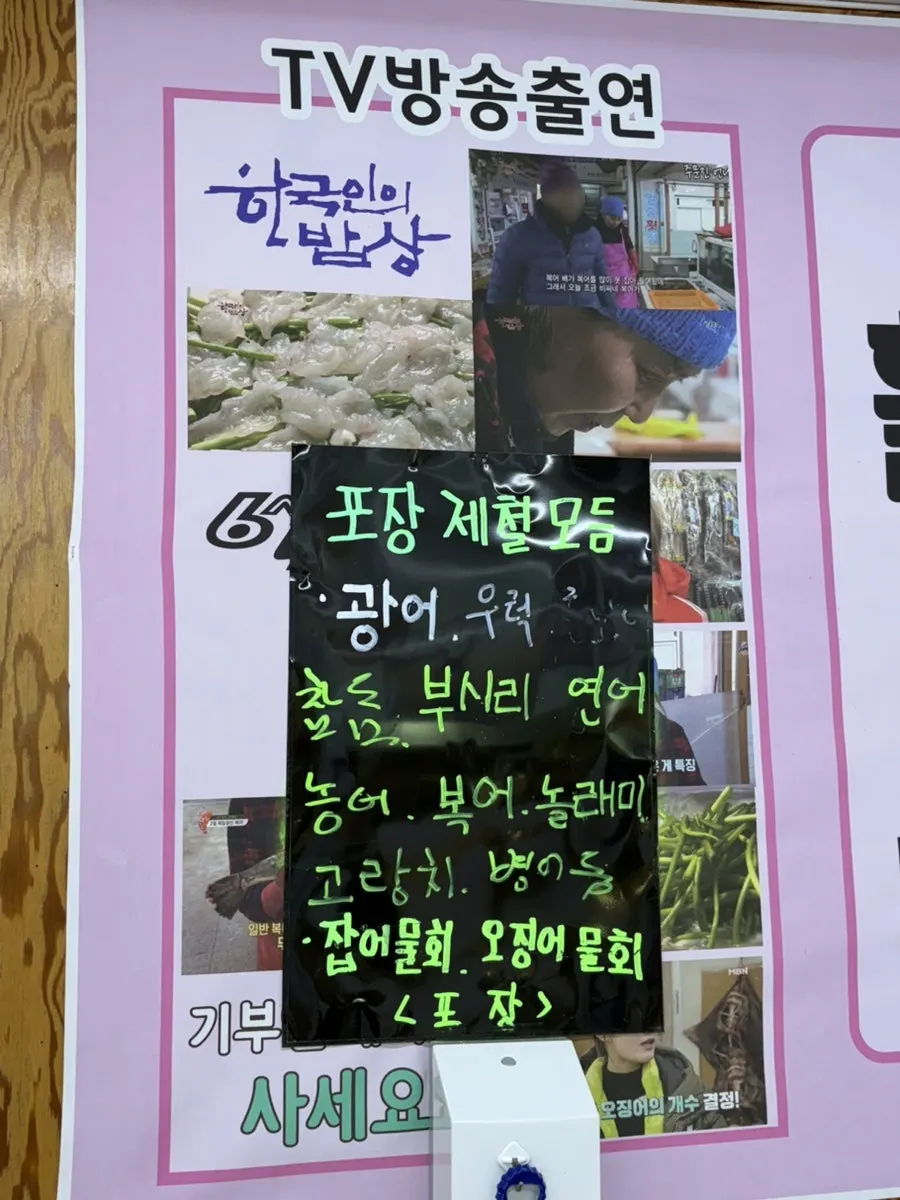 TV방송출연
한국인의
밥상
주문진
복어 배가 복어를 많이 못 잡아
그래서 오늘 조금 비싸네 복어가
6
포장 제철 모듬
· 광어 . 우럭
참돔. 부시리 연어
농어 . 복어 . 놀래미
고랑치. 병어돔
· 잡어물회. 오징어 물회
< 포 장 >
게 특징
일반
기부
사세요
MBN
오징어의 개수 결정!